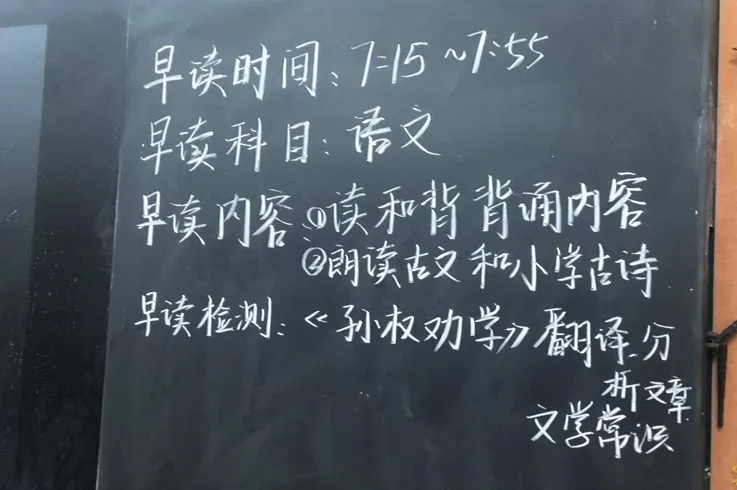 早读时间：7:15~7:55
早读科目：语文
早读内容：①读和背背诵内容
②朗读古文和小学古诗
早读检测：《孙权劝学》翻译、分
析文章
文学常识